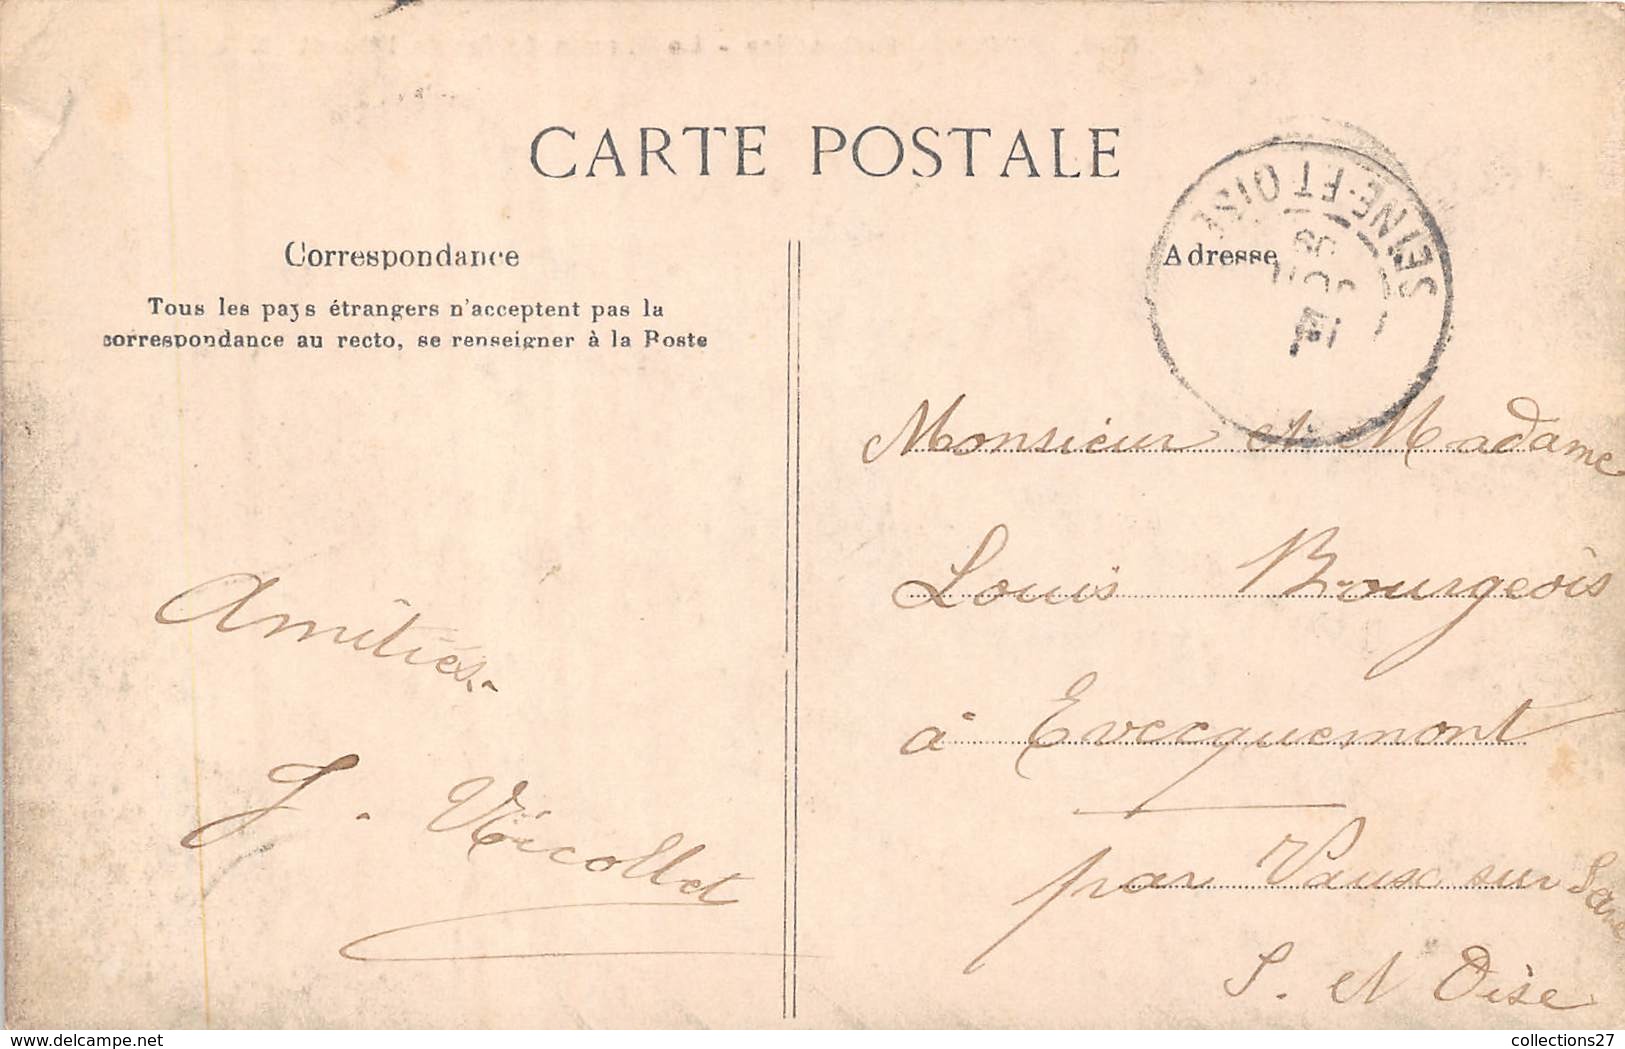 CARTE POSTALE
Correspondance
Tous les pays étrangers n'acceptent pas la
correspondance au recto, se renseigner à la Poste
Amitiés
J. Nicollet
Adresse
SEINE-ET-OISE
09
Monsieur et Madame
Louis Bourgeois
à Evecquemont
par Vaux sur Seine
S. et Oise
collections27